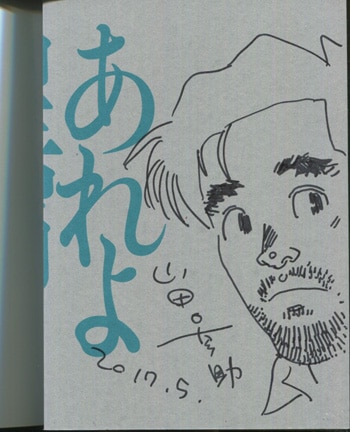 あれよ
山田参助
2017.5.